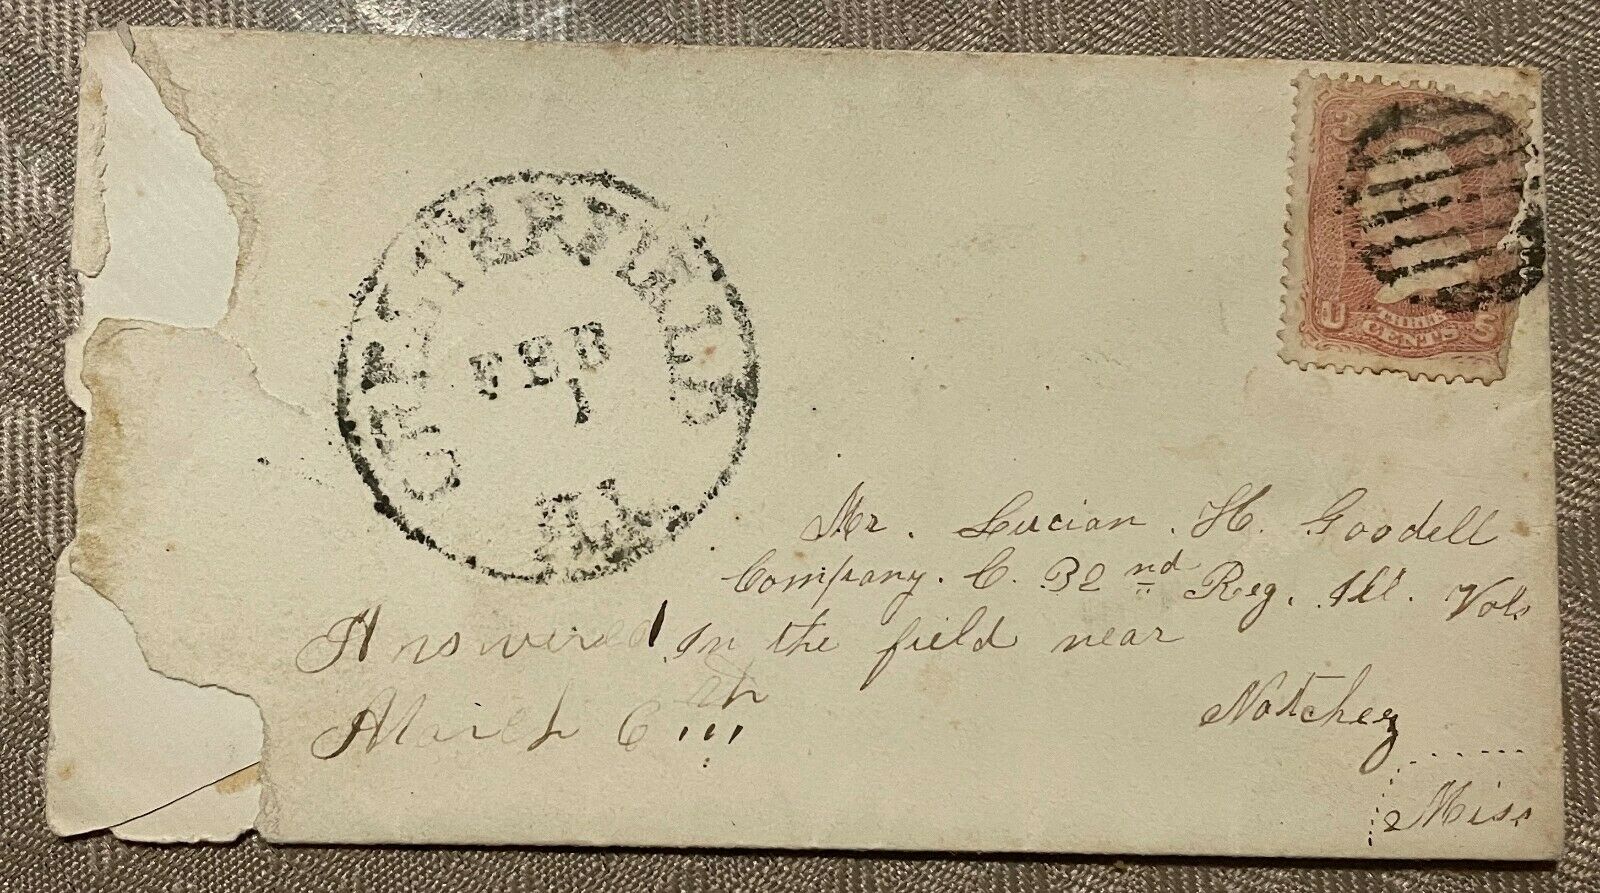 CHESTERFIELD
FEB
1
ILL.
3 3
U THREE S
CENTS
Mr. Lucian. H. Goodell
Company. C. 32nd Reg. Ill. Vols
In the field near
Natchez
Miss
Answered
March 6th